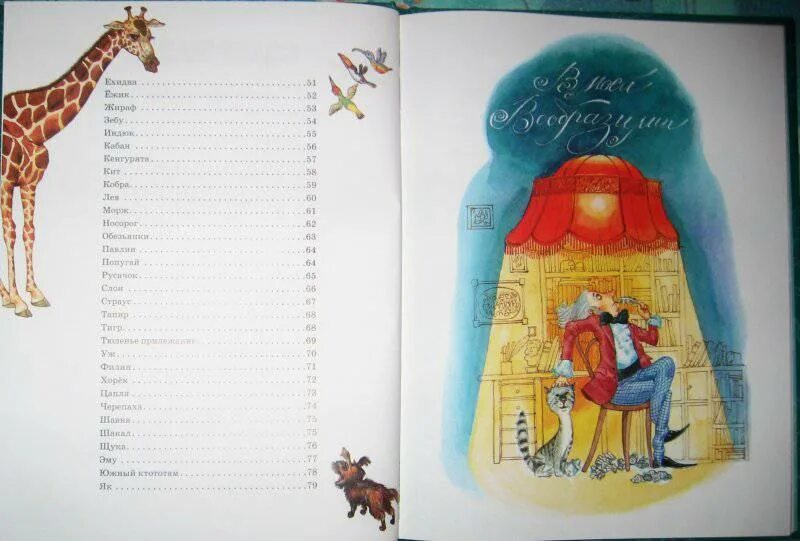 Ехидна 51
Ёжик 52
Жираф 53
Зебу 54
Индюк 55
Кабан 56
Кенгурята 57
Кит 58
Кобра 59
Лев 60
Морж 61
Носорог 62
Обезьянки 63
Павлин 64
Попугай 64
Русачок 65
Слон 66
Страус 67
Тапир 68
Тигр 68
Тюленье прилежание 69
Уж 70
Филин 71
Хорёк 72
Цапля 73
Черепаха 74
Шавка 75
Шакал 75
Щука 76
Эму 77
Южный ктототам 78
Як 79
В моей
Вообразилии